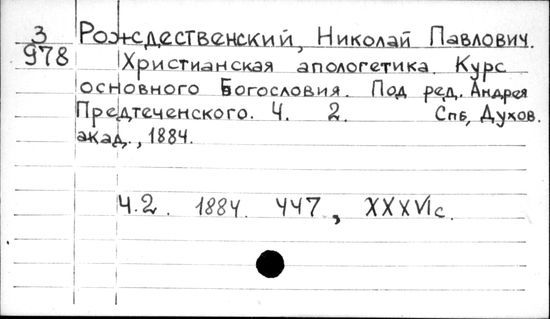 З Рождественский, Николай Павлович.
978 Христианская апологетика. Курс
основного Богословия. Под ред. Андрея
Предтеченского. Ч. 2. Спб, Духов.
акад., 1884.
Ч.2. 1884. 447, XXXVI с.